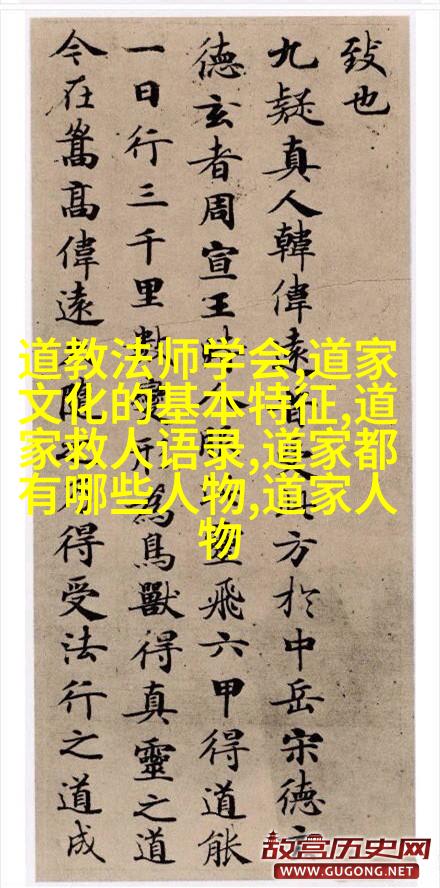 致也
九疑真人韓偉遠方於中岳宋德玄
德玄者周宣王飛六甲得道能
一日行三千里鳥獸得真靈之道
今在嵩高偉遠得受法行之道成
道教法师学会,道家
文化的基本特征,道
家救人语录,道家都
有哪些人物,道家人
物
故宫历史网
WWW.GUGONG.NET